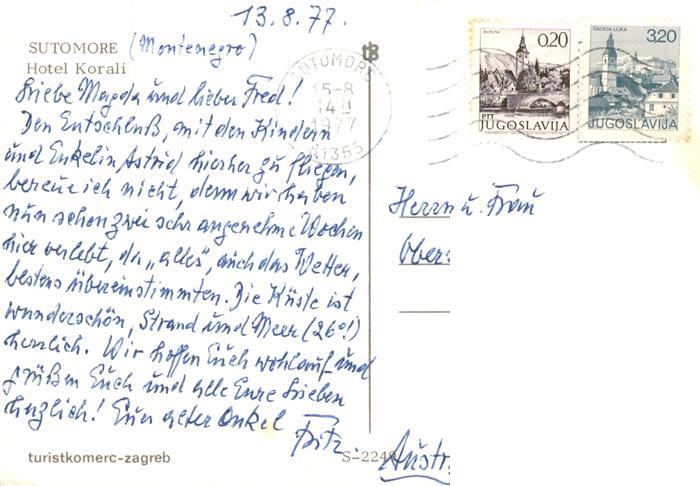 13.8.77.
SUTOMORE (Montenegro)
Hotel Korali
Liebe Magda und lieber Fred!
Den Entschluß, mit den Kindern
und Enkelin Astrid hierher zu fliegen,
bereue ich nicht, denn wir haben
nun schon zwei sehr angenehme Wochen
hier verlebt, da „alles", auch das Wetter,
bestens übereinstimmten. Die Küste ist
wunderschön, Strand und Meer (26°!)
herrlich. Wir hoffen Euch wohlauf und
grüßen Euch und alle Eure Lieben
herzlich! Euer alter Onkel
Fritz.
turistkomerc-zagreb
S-2249
tB
SUTOMORE
15-8
14
1977
81355
BOHINJ
0.20
PTT
JUGOSLAVIJA
ŠKOFJA LOKA
3,20
JUGOSLAVIJA
Herrn u. Frau
Ober
Austr